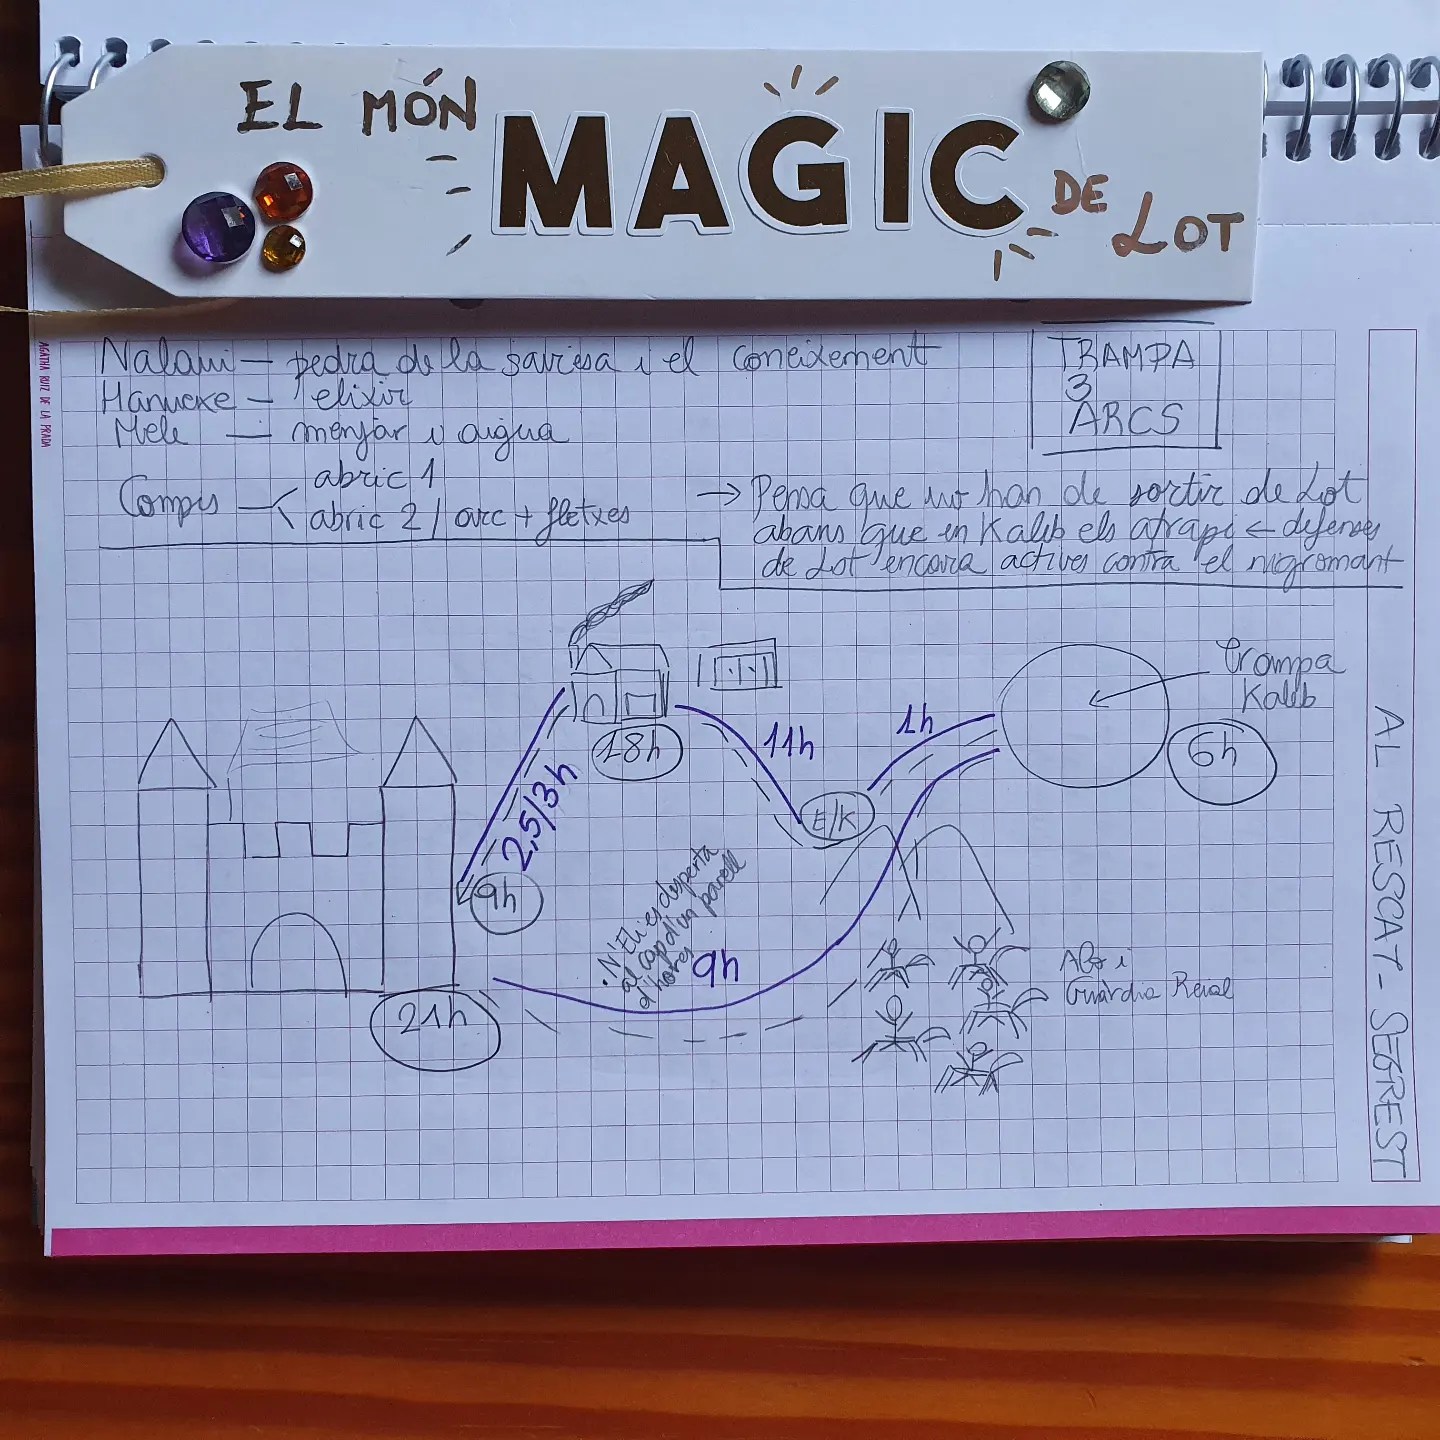 EL MÓN MAGIC DE LOT
AGATHA RUIZ DE LA PRADA
Nalani — pedra de la saviesa i el coneixement
— elixir
Mele — menjar i aigua
Compis — abric 1
abric 2 / arc + fletxes
TRAMPA
3
ARCS
→ Pensa que no han de sortir de Lot
abans que en Kalib els atrapi ← defenses
de Lot encara actives contra el nigromant
trampa
Kalib
18h
11h
1h
6h
2,5/3h
E/K
9h
N'Eli es desperta
al cap d'un parell
d'hores
9h
21h
i
Guàrdia Reial
AL RESCAT - SEGREST